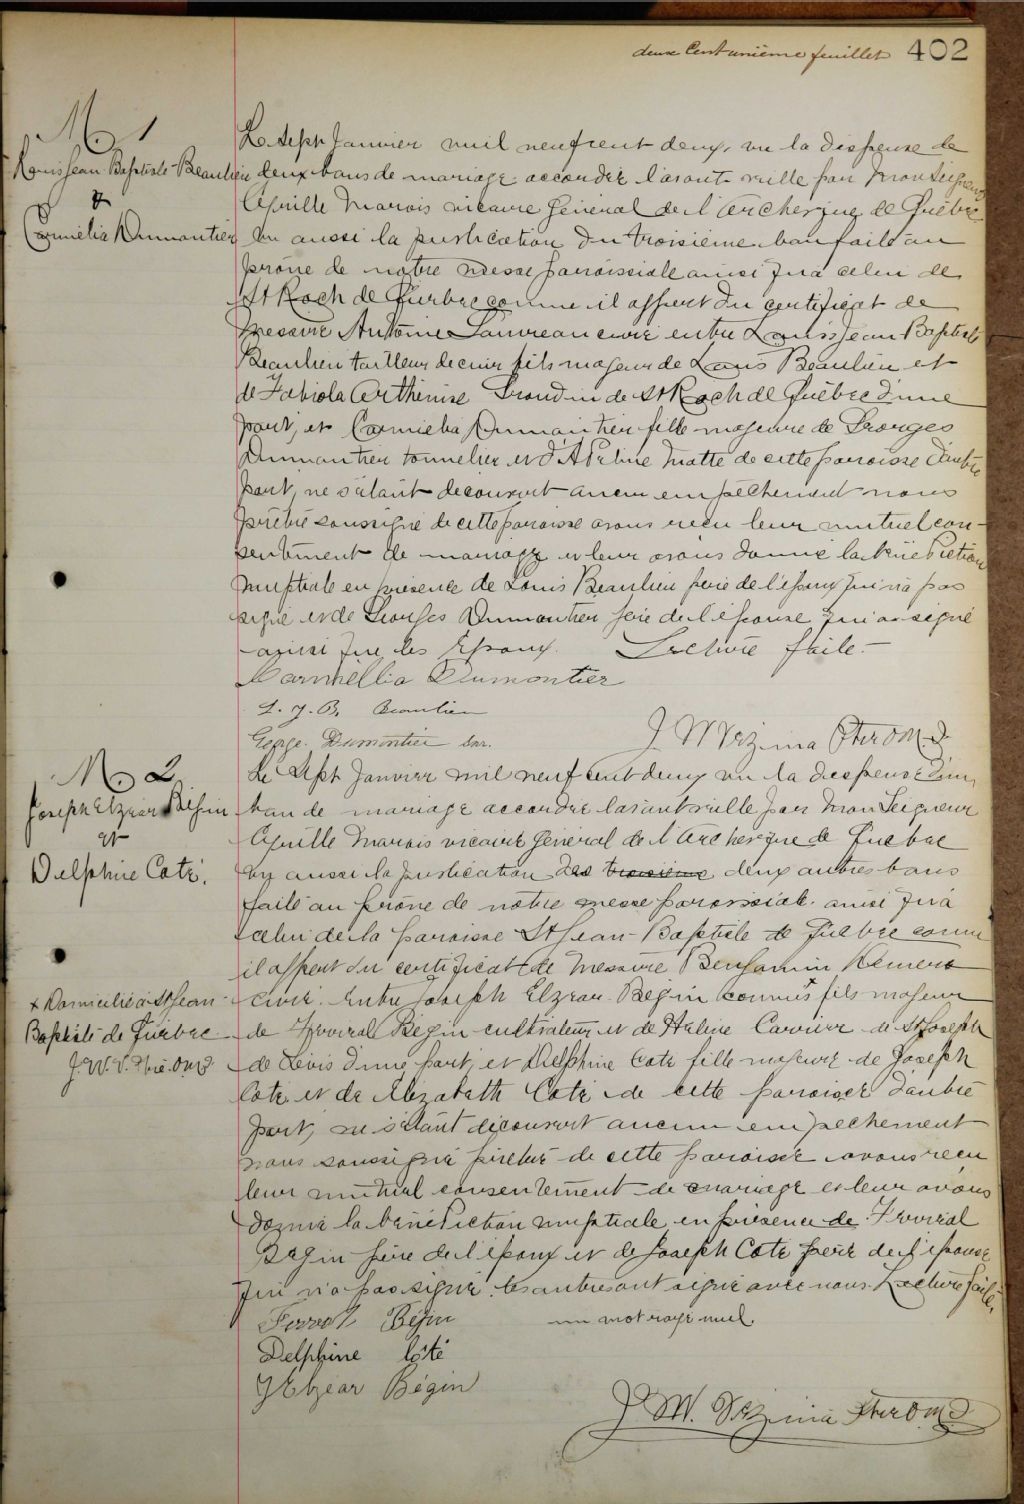 deux Cent unième feuillet 402
M. 1
Louis Jean Baptiste Beaulieu
&
Carmélia Dumontier
Le sept Janvier mil neuf cent deux, vu la dispense de
deux bans de mariage accordée l'avant veille par Monseigneur
Cyrille Marois vicaire Général de l'Archevêque de Québec
Vu aussi la publication du troisième ban faite au
prône de notre messe paroissiale ainsi qu'à celui de
St Roch de Québec comme il appert du certificat de
Messire Antoine Gauvreau curé entre Louis Jean Baptiste
Beaulieu tailleur de cuir fils majeur de Louis Beaulieu et
de Fabiola Arthémise Grondin de St Roch de Québec d'une
part, et Carmélia Dumontier fille majeure de Georges
Dumontier tonnelier et d'Adeline Matte de cette paroisse d'autre
part, ne s'étant découvert aucun empêchement nous
prêtre soussigné de cette paroisse avons reçu leur mutuel con-
sentement de mariage et leur avons donné la bénédiction
nuptiale en présence de Louis Beaulieu père de l'époux qui n'a pas
signé et de Georges Dumontier père de l'épouse qui a signé
ainsi que les Epoux. Lecture faite.
Carmellia Dumontier
L. J. B. Beaulieu
George Dumontier snr.
J W Vézina Ptre O M I
M. 2
Joseph Elzéar Bégin
et
Delphine Coté.
Le sept Janvier mil neuf cent deux vu la dispense d'un
ban de mariage accordée l'avant veille par Monseigneur
Cyrille Marois vicaire Général de l'Archevêque de Québec
vu aussi la publication des troisième deux autres bans
faite au prône de notre messe paroissiale ainsi qu'à
celui de la paroisse St Jean-Baptiste de Québec comme
il appert du certificat de Messire Benjamin Demers
curé. Entre Joseph Elzéar Bégin commis x fils majeur
x Domicilié à St Jean
Baptiste de Québec
J. W. V. Ptre. O.M.I
de Ferréol Bégin cultivateur et de Carrier de St Joseph
de Lévis d'une part, et Delphine Coté fille majeure de Joseph
Coté et de Elizabeth Coté de cette paroisse d'autre
part, ne s'étant découvert aucun empêchement
nous soussigné prêtre de cette paroisse avons reçu
leur mutuel consentement de mariage et leur avons
donné la bénédiction nuptiale en présence de Ferréol
Bégin père de l'époux et de Joseph Coté père de l'épouse
qui n'a pas signé. les autres ont signé avec nous. Lecture faite.
un mot rayé nul.
Bégin
Delphine Côté
J Elzéar Bégin
J. W. Vézina Ptre O.M.I